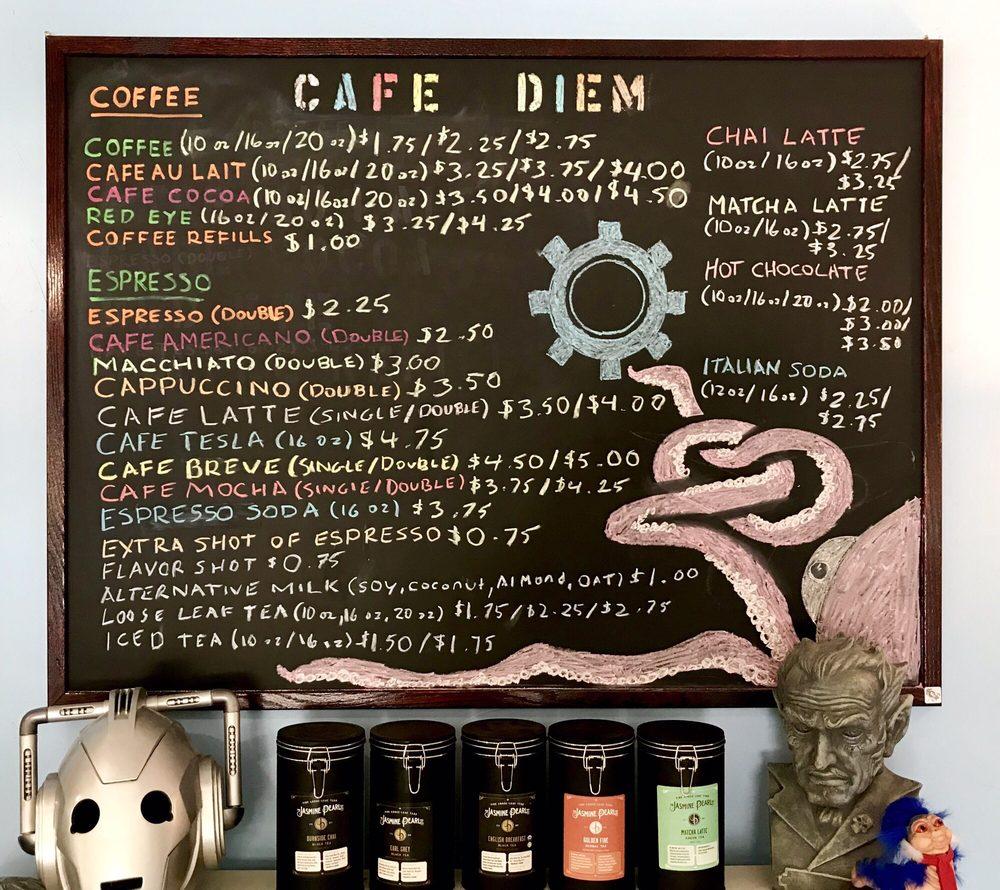 CAFE DIEM
COFFEE
COFFEE (10 oz/16 oz/20 oz) $1.75/$2.25/$2.75
CAFE AU LAIT (10 oz/16 oz/20 oz) $3.25/$3.75/$4.00
CAFE COCOA (10 oz/16 oz/20 oz) $3.50/$4.00/$4.50
RED EYE (16 oz/20 oz) $3.25/$4.25
COFFEE REFILLS $1.00
ESPRESSO
ESPRESSO (DOUBLE) $2.25
CAFE AMERICANO (DOUBLE) $2.50
MACCHIATO (DOUBLE) $3.00
CAPPUCCINO (DOUBLE) $3.50
CAFE LATTE (SINGLE/DOUBLE) $3.50/$4.00
CAFE TESLA (16 OZ) $4.75
CAFE BREVE (SINGLE/DOUBLE) $4.50/$5.00
CAFE MOCHA (SINGLE/DOUBLE) $3.75/$4.25
ESPRESSO SODA (16 OZ) $3.75
EXTRA SHOT OF ESPRESSO $0.75
FLAVOR SHOT $0.75
ALTERNATIVE MILK (SOY, coconut, Almond, OAT) $1.00
LOOSE LEAF TEA (10 oz, 16 oz, 20 oz) $1.75/$2.25/$2.75
ICED TEA (10 oz/16 oz) $1.50/$1.75
CHAI LATTE
(10 oz/16 oz) $2.75/
$3.25
MATCHA LATTE
(10 oz/16 oz) $2.75/
$3.25
HOT CHOCOLATE
(10 oz/16 oz/20 oz) $2.00/
$3.00/
$3.50
ITALIAN SODA
(12 oz/16 oz) $2.25/
$2.75
JASMINE PEARL
BURNSIDE CHAI
BLACK TEA
JASMINE PEARL
EARL GREY
BLACK TEA
JASMINE PEARL
ENGLISH BREAKFAST
BLACK TEA
JASMINE PEARL
GOLDEN FIRE
HERBAL TEA
JASMINE PEARL
MATCHA LATTE
GREEN TEA